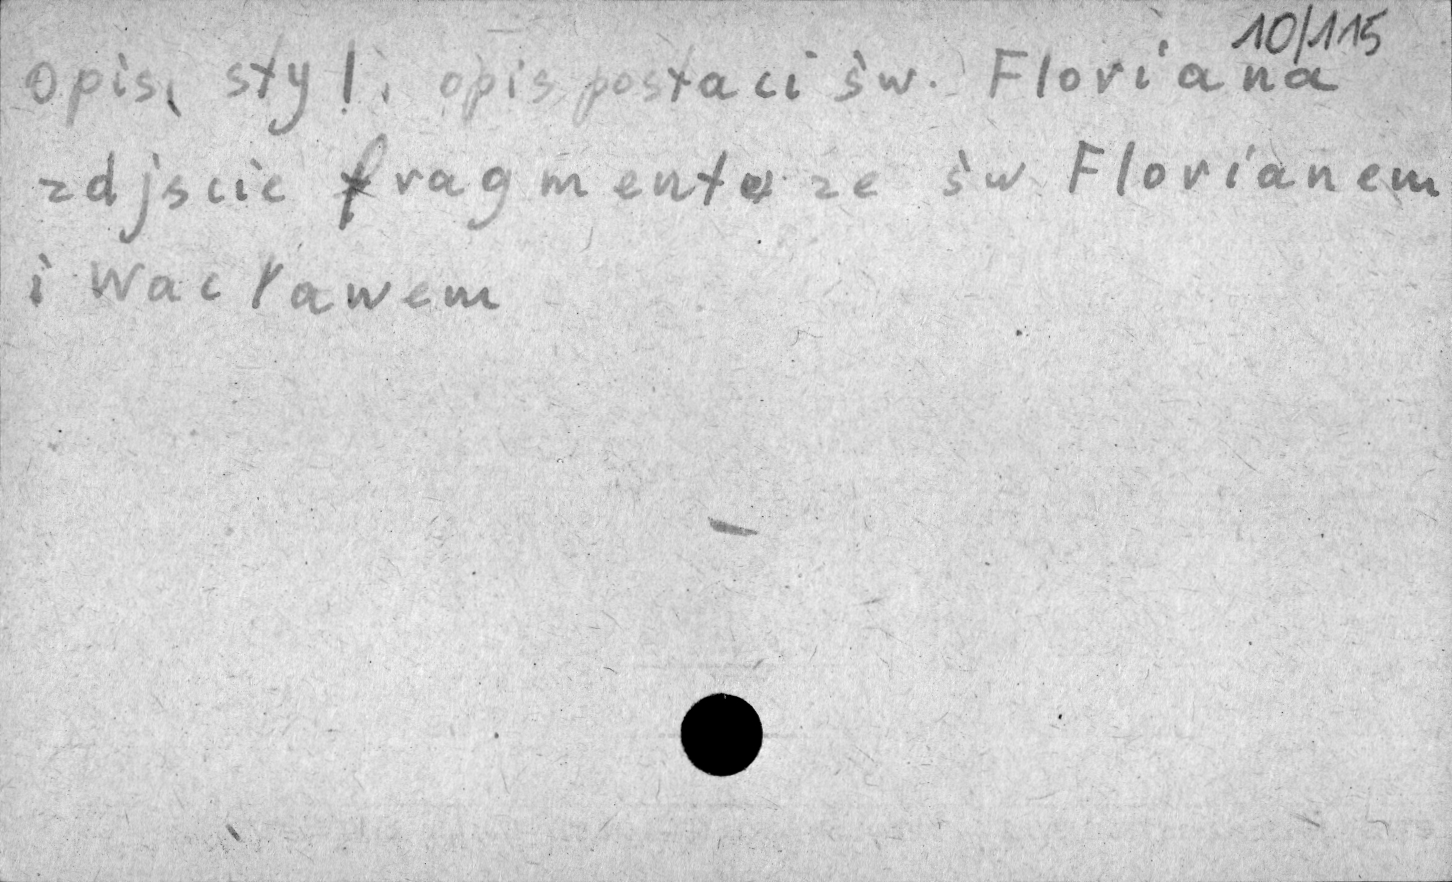 10/115
opis, styl, opis postaci św. Floriana
zdjscie fragmentu ze św Florianem
i Wacławem